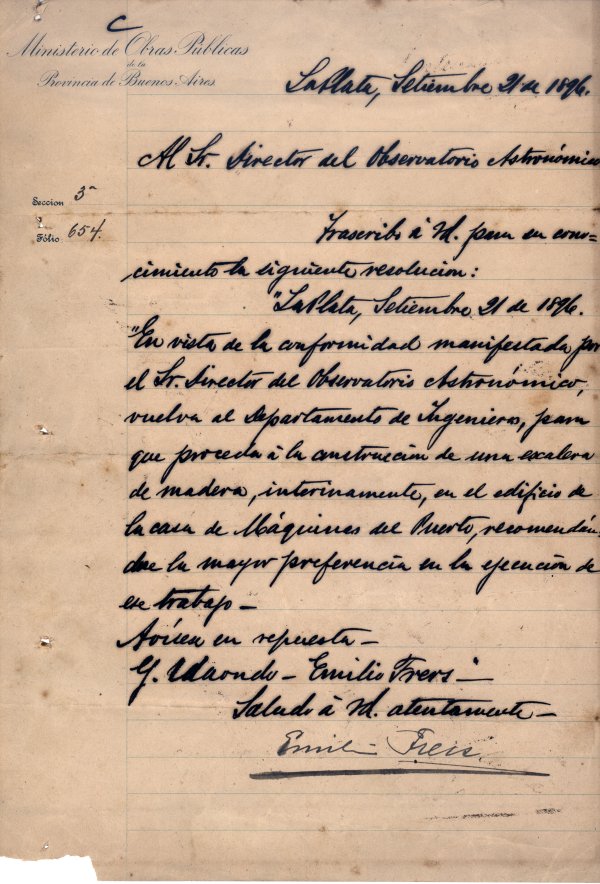 C
Ministerio de Obras Públicas
de la
Provincia de Buenos Aires
La Plata, Setiembre 21 de 1896.
Al Sr. Director del Observatorio Astronómico
Seccion 3ª
Fólio 654.
Trascribo á Vd. para su cono-
cimiento la siguiente resolucion:
"La Plata, Setiembre 21 de 1896.
"En vista de la conformidad manifestada por
el Sr. Director del Observatorio Astronómico,
vuelva al Departamento de Ingenieros, para
que proceda á la construcción de una escalera
de madera, interinamente, en el edificio de
la casa de Máquinas del Puerto, recomendán-
dose la mayor preferencia en la ejecución de
ese trabajo—
Avísese en repuesta—
G. Udaondo— Emilio Frers"—
Saludo á Vd. atentamente—
Emilio Frers